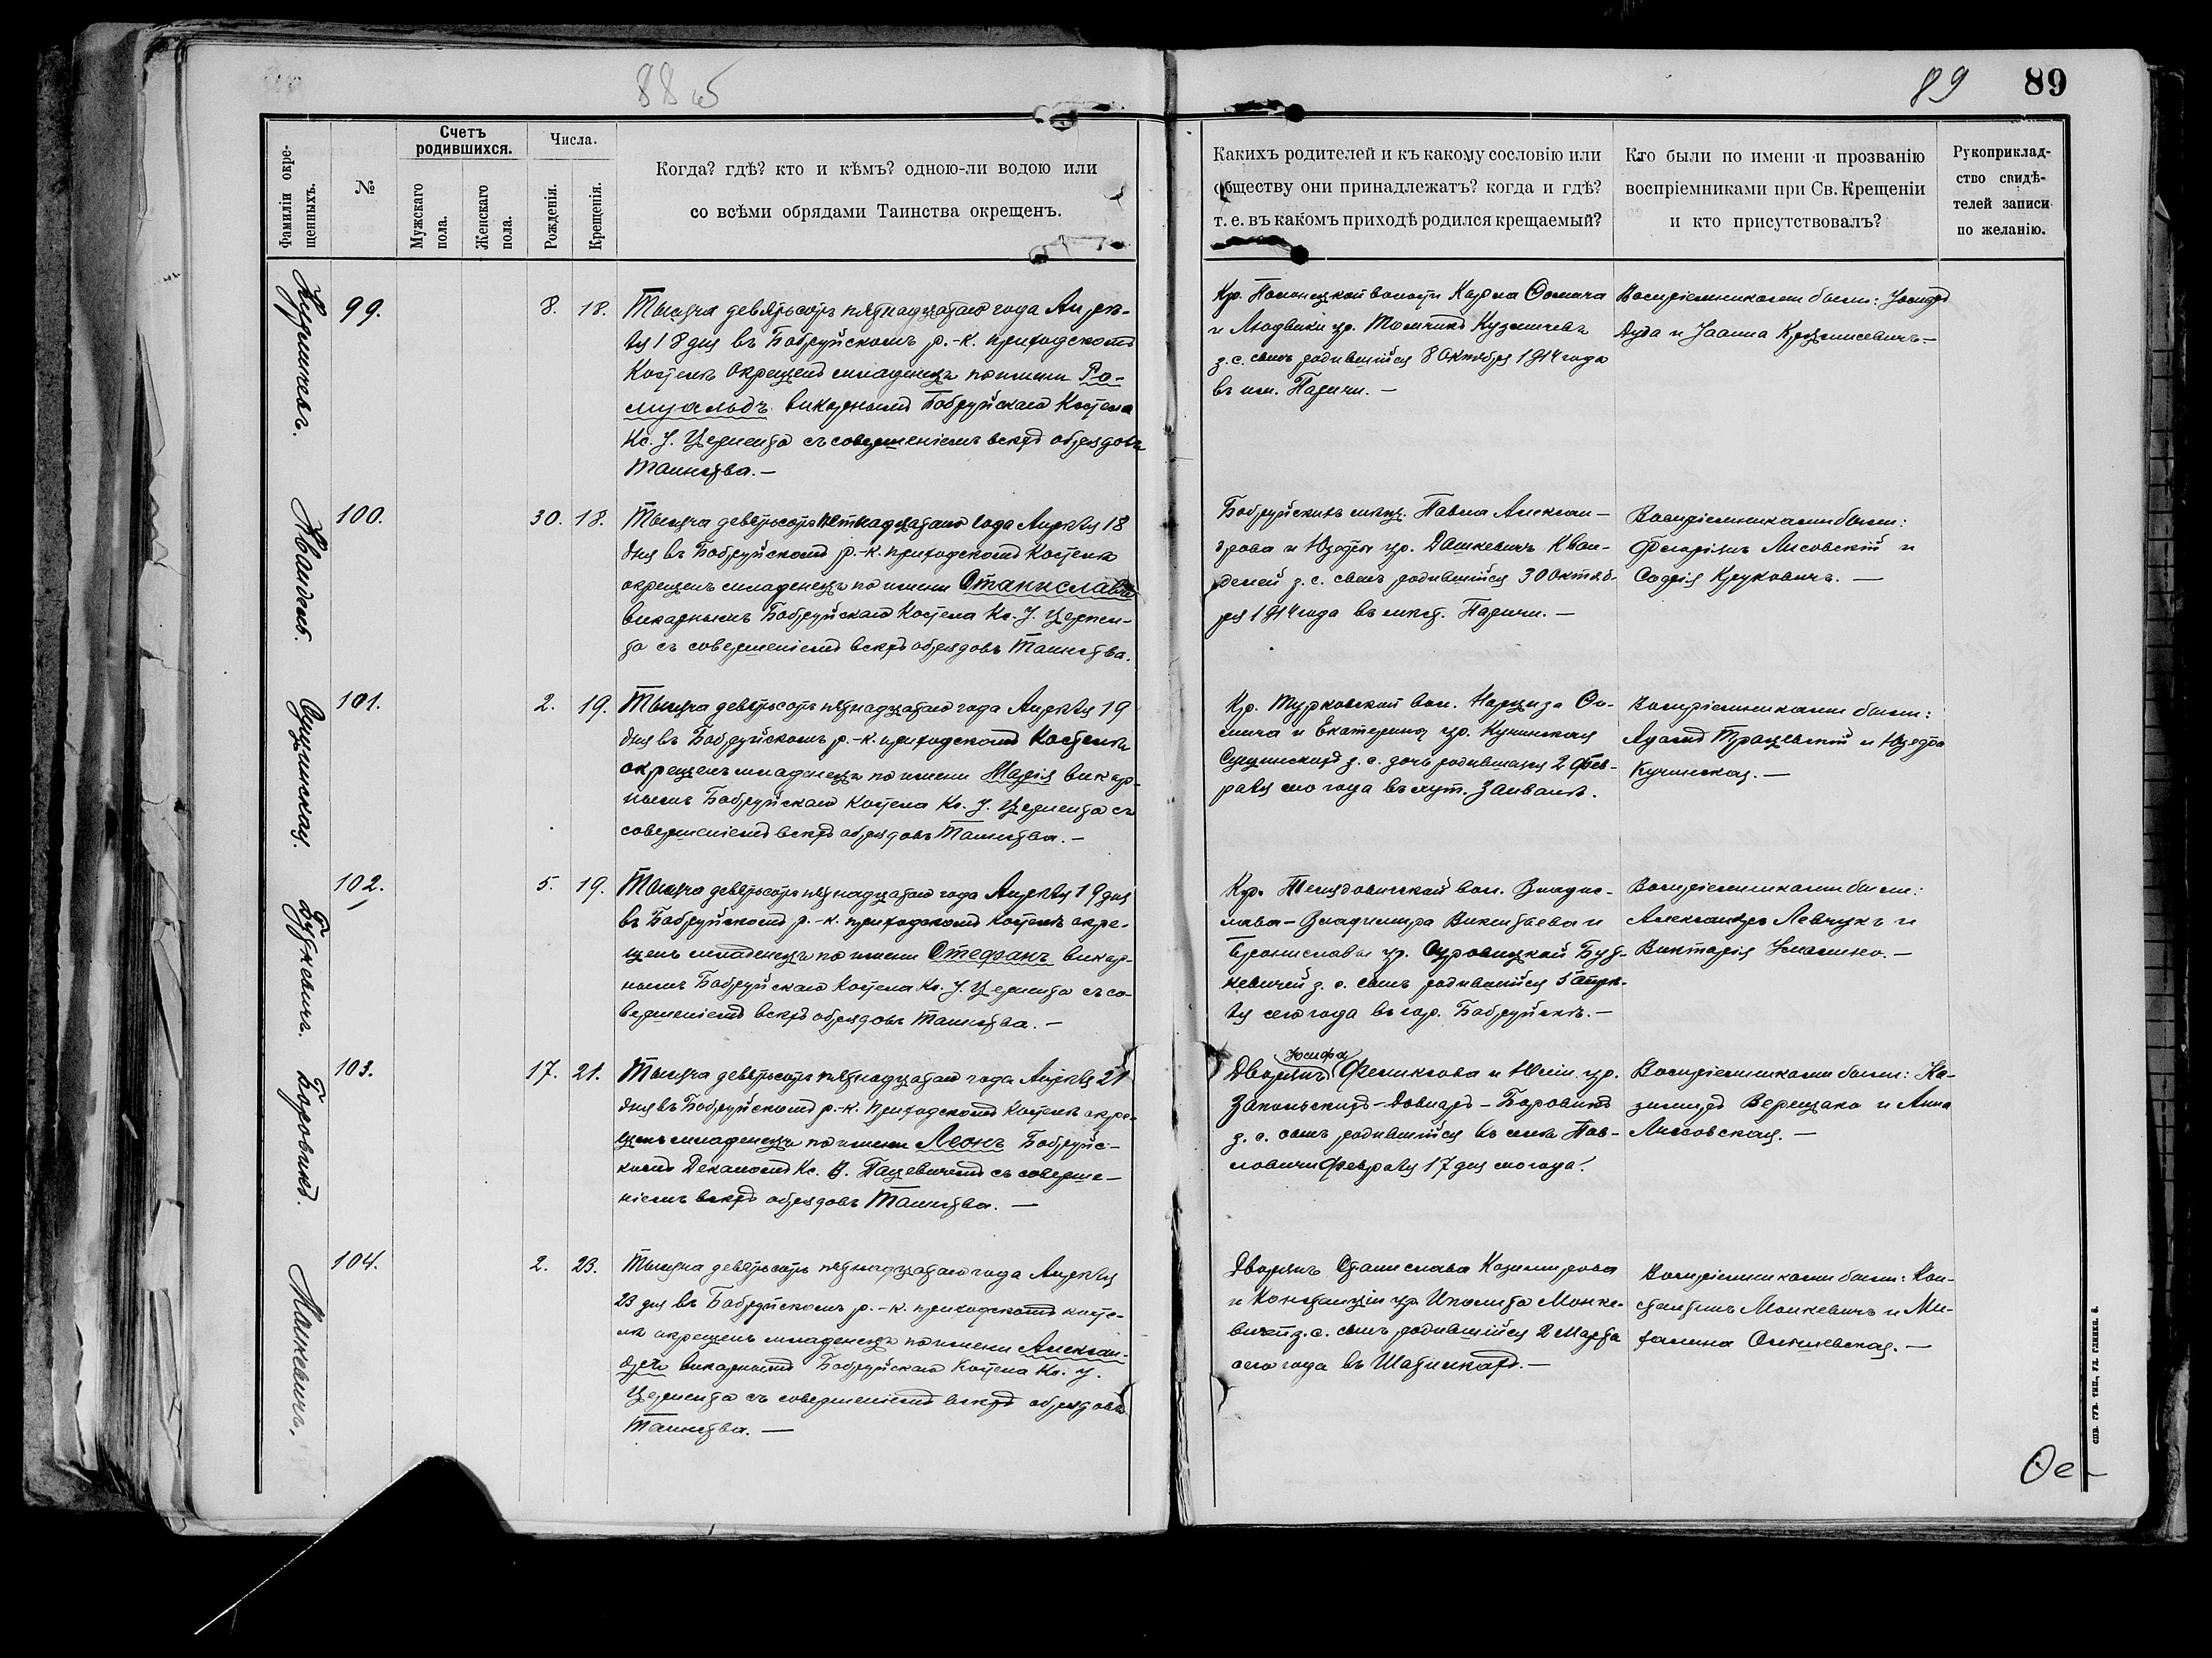 88 об
89 89
Фамиліи окре-
щенныхъ.
№
Счетъ
родившихся.
Мужскаго
пола.
Женскаго
пола.
Числа.
Рожденія.
Крещенія.
Когда? гдѣ? кто и кѣмъ? одною-ли водою или
со всѣми обрядами Таинства окрещенъ.
Какихъ родителей и къ какому сословію или
обществу они принадлежатъ? когда и гдѣ?
т. е. въ какомъ приходѣ родился крещаемый?
Кто были по имени и прозванію
воспріемниками при Св. Крещеніи
и кто присутствовалъ?
Рукоприклад-
ство свидѣ-
телей записи
по желанію.
99.
8. 18.
Тысяча девятьсотъ пятнадцатаго года Апрѣ-
ля 18 дня въ Бобруйскомъ р.-к. приходскомъ
Костелѣ окрещенъ младенецъ по имени Ро-
муальдъ викарнымъ Бобруйскаго Костела
Кс. І. Цермента съ совершеніемъ всѣхъ обрядовъ
Таинства.—
Кр. волости Карла Ѳомича
и Людвики ур. Кузмичевъ
з. с. сынъ родившійся 8 Октября 1914 года
въ им. Паричи.—
Воспріемниками были: Іосифъ
Дуда и Іоанна —
Квандель.
100.
30. 18.
Тысяча девятьсотъ пятнадцатаго года Апрѣля 18
дня въ Бобруйскомъ р.-к. приходскомъ Костелѣ
окрещенъ младенецъ по имени Станиславъ
викарнымъ Бобруйскаго Костела Кс. І. Цермен-
та съ совершеніемъ всѣхъ обрядовъ Таинства.
Бобруйскихъ мѣщ. Павла Алексан-
дрова и Юзефы ур. Дашкевичъ Кван-
делей з. с. сынъ родившійся 30 октяб-
ря 1914 года въ мѣст. Паричи.—
Воспріемниками были:
Флоріанъ Лисовскій и
Софія Круковичъ.—
Сущинская.
101.
2. 19.
Тысяча девятьсотъ пятнадцатаго года Апрѣля 19
дня въ Бобруйскомъ р.-к. приходскомъ Костелѣ
окрещенъ младенецъ по имени Марія викар-
нымъ Бобруйскаго Костела Кс. І. Цермента съ
совершеніемъ всѣхъ обрядовъ Таинства.—
Кр. Турковской вол. Нарциза Ѳо-
мича и Екатерины ур. Кучинская
Сущинскихъ з. с. дочь родившаяся 2 Фев-
раля сего года въ
Воспріемниками были:
Адамъ и Юзефа
Кучинская.—
Буткевичъ.
102.
5. 19.
Тысяча девятьсотъ пятнадцатаго года Апрѣля 19 дня
въ Бобруйскомъ р.-к. приходскомъ Костелѣ окре-
щенъ младенецъ по имени Стефанъ викар-
нымъ Бобруйскаго Костела Кс. І. Цермента съ со-
вершеніемъ всѣхъ обрядовъ Таинства.—
Кр. вол. Владис-
лава-Владимира Викентьева и
Брониславы ур. Бут-
кевичей з. с. сынъ родившійся 5 Апрѣ-
ля сего года въ гор. Бобруйскѣ.—
Воспріемниками были:
Александръ Левчукъ и
Викторія —
Боровикъ.
103.
17. 21.
Тысяча девятьсотъ пятнадцатаго года Апрѣля 21
дня въ Бобруйскомъ р.-к. приходскомъ Костелѣ окре-
щенъ младенецъ по имени Леонъ Бобруйс-
кимъ Деканомъ Кс. В. Пацевичемъ съ соверше-
ніемъ всѣхъ обрядовъ Таинства.—
Іосифа
Дворянъ Феликсова и Юліи ур.
Закольскихъ-Довнаръ-Боровикъ
з. с. сынъ родившійся въ селѣ Пав-
ловичи Февраля 17 дня сего года.
Воспріемниками были: Ка-
зимиръ Верещако и Анна
Лиссовская.—
Манкевичъ.
104.
2. 23.
Тысяча девятьсотъ пятнадцатаго года Апрѣля
23 дня въ Бобруйскомъ р.-к. приходскомъ косте-
лѣ окрещенъ младенецъ по имени Алексан-
дръ викарнымъ Бобруйскаго Костела Кс. І.
Цермента съ совершеніемъ всѣхъ обрядовъ
Таинства.—
Дворянъ Станислава Казимірова
и Констанціи ур. Монке-
вичей з. с. сынъ родившійся 2 Марта
сего года въ Шатилкахъ.—
Воспріемниками были: Кон-
стантинъ Монкевичъ и Ми-
халина —